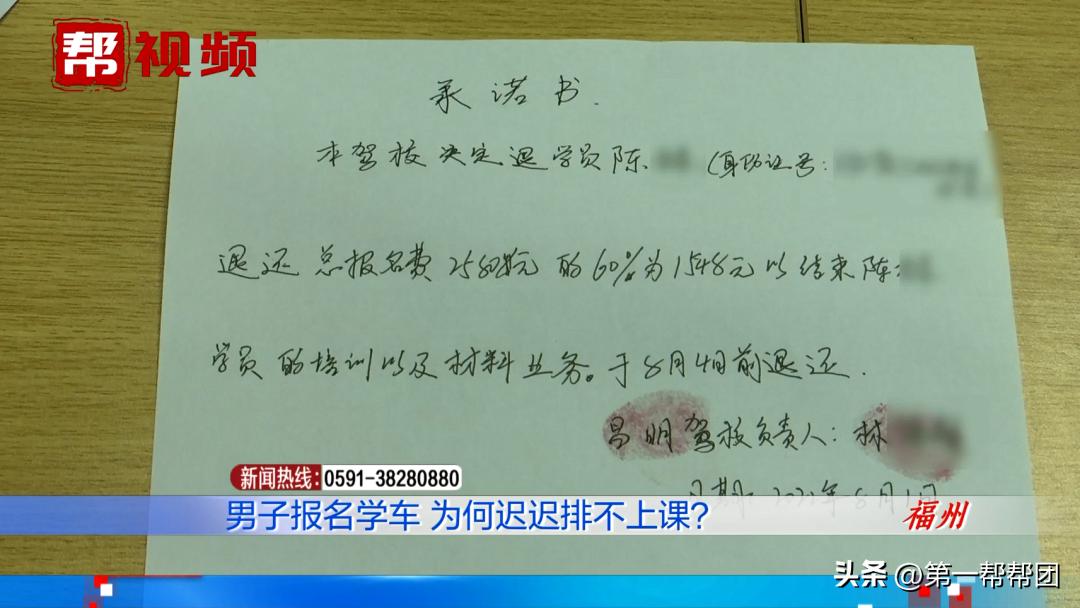 帮视频
承诺书.
本驾校决定退学员陈 (身份证号:
退还总报名费2580元的60%为1548元以结束陈
学员的培训以及材料业务。于8月4日前退还.
昌明驾校负责人:林
日期 2021年8月1日
新闻热线:0591-38280880
男子报名学车 为何迟迟排不上课?
福州
头条 @第一帮帮团